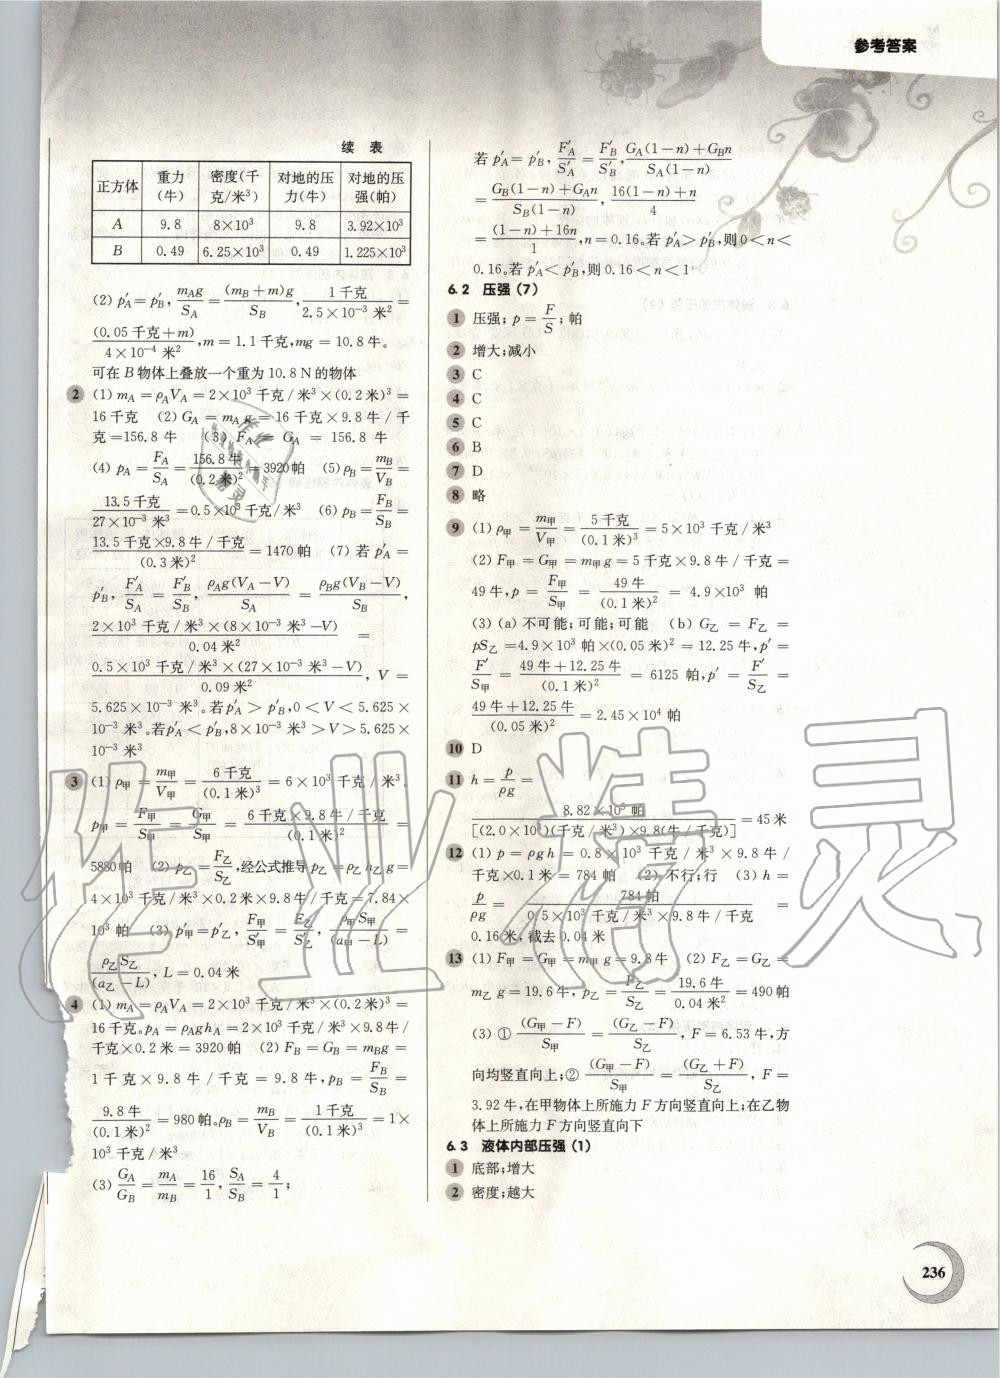 参考答案
续 表
正方体 重力(牛) 密度(千克/米³) 对地的压力(牛) 对地的压强(帕)
A 9.8 8×10³ 9.8 3.92×10³
B 0.49 6.25×10³ 0.49 1.225×10³
(2) p′A=p′B, mAg/SA = (mB+m)g/SB, 1千克/2.5×10⁻³米² =
(0.05千克+m)/4×10⁻⁴米², m=1.1千克, mg=10.8牛。
可在B物体上叠放一个重为10.8N的物体
2 (1) mA=ρAVA=2×10³千克/米³×(0.2米)³=
16千克 (2) GA=mAg=16千克×9.8牛/千
克=156.8牛 (3) FA=GA=156.8牛
(4) pA=FA/SA=156.8牛/(0.2米)²=3920帕 (5) ρB=mB/VB=
13.5千克/27×10⁻³米³=0.5×10³千克/米³ (6) pB=FB/SB=
13.5千克×9.8牛/千克/(0.3米)²=1470帕 (7) 若p′A=
p′B, F′A/SA=F′B/SB, ρAg(VA-V)/SA=ρBg(VB-V)/SB,
2×10³千克/米³×(8×10⁻³米³-V)/0.04米² =
0.5×10³千克/米³×(27×10⁻³米³-V)/0.09米², V=
5.625×10⁻³米³。若p′A>p′B,0<V<5.625×
10⁻³米³。若p′A<p′B,8×10⁻³米³>V>5.625×
10⁻³米³
3 (1) ρ甲=m甲/V甲=6千克/(0.1米)³=6×10³千克/米³。
p甲=F甲/S甲=G甲/S甲=6千克×9.8牛/千克/(0.1米)²=
5880帕 (2) p乙=F乙/S乙,经公式推导p乙=ρ乙h乙g=
4×10³千克/米³×0.2米×9.8牛/千克=7.84×
10³帕 (3) p′甲=p′乙, F甲/S′甲=F乙/S′乙, ρ甲S甲/(a甲-L)=
ρ乙S乙/(a乙-L), L=0.04米
4 (1) mA=ρAVA=2×10³千克/米³×(0.2米)³=
16千克。pA=ρAghA=2×10³千克/米³×9.8牛/
千克×0.2米=3920帕 (2) FB=GB=mBg=
1千克×9.8牛/千克=9.8牛, pB=FB/SB=
9.8牛/(0.1米)²=980帕。ρB=mB/VB=1千克/(0.1米)³=1×
10³千克/米³
(3) GA/GB=mA/mB=16/1, SA/SB=4/1;
若p′A=p′B, F′A/S′A=F′B/S′B, GA(1-n)+GBn/SA(1-n)
=GB(1-n)+GAn/SB(1-n), 16(1-n)+n/4
=(1-n)+16n/1, n=0.16。若p′A>p′B,则0<n<
0.16。若p′A<p′B,则0.16<n<1
6.2 压强(7)
1 压强; p=F/S; 帕
2 增大;减小
3 C
4 C
5 C
6 B
7 D
8 略
9 (1) ρ甲=m甲/V甲=5千克/(0.1米)³=5×10³千克/米³
(2) F甲=G甲=m甲g=5千克×9.8牛/千克=
49牛, p=F甲/S甲=49牛/(0.1米)²=4.9×10³帕
(3) (a) 不可能;可能;可能 (b) G乙=F乙=
pS乙=4.9×10³帕×(0.05米)²=12.25牛, p′=
F′/S甲=49牛+12.25牛/(0.1米)²=6125帕, p′=F′/S乙=
49牛+12.25牛/(0.05米)²=2.45×10⁴帕
10 D
11 h=p/ρg=
8.82×10⁵帕/[(2.0×10³)(千克/米³)×9.8(牛/千克)]=45米
12 (1) p=ρgh=0.8×10³千克/米³×9.8牛/
千克×0.1米=784帕 (2) 不行;行 (3) h=
p/ρg=784帕/0.5×10³千克/米³×9.8牛/千克=
0.16米,截去0.04米
13 (1) F甲=G甲=m甲g=9.8牛 (2) F乙=G乙=
m乙g=19.6牛, p乙=F乙/S乙=19.6牛/0.04米²=490帕
(3) ① (G甲-F)/S甲=(G乙-F)/S乙, F=6.53牛,方
向均竖直向上;② (G甲-F)/S甲=(G乙+F)/S乙, F=
3.92牛,在甲物体上所施力F方向竖直向上;在乙物
体上所施力F方向竖直向下
6.3 液体内部压强(1)
1 底部;增大
2 密度;越大
236
作业精灵